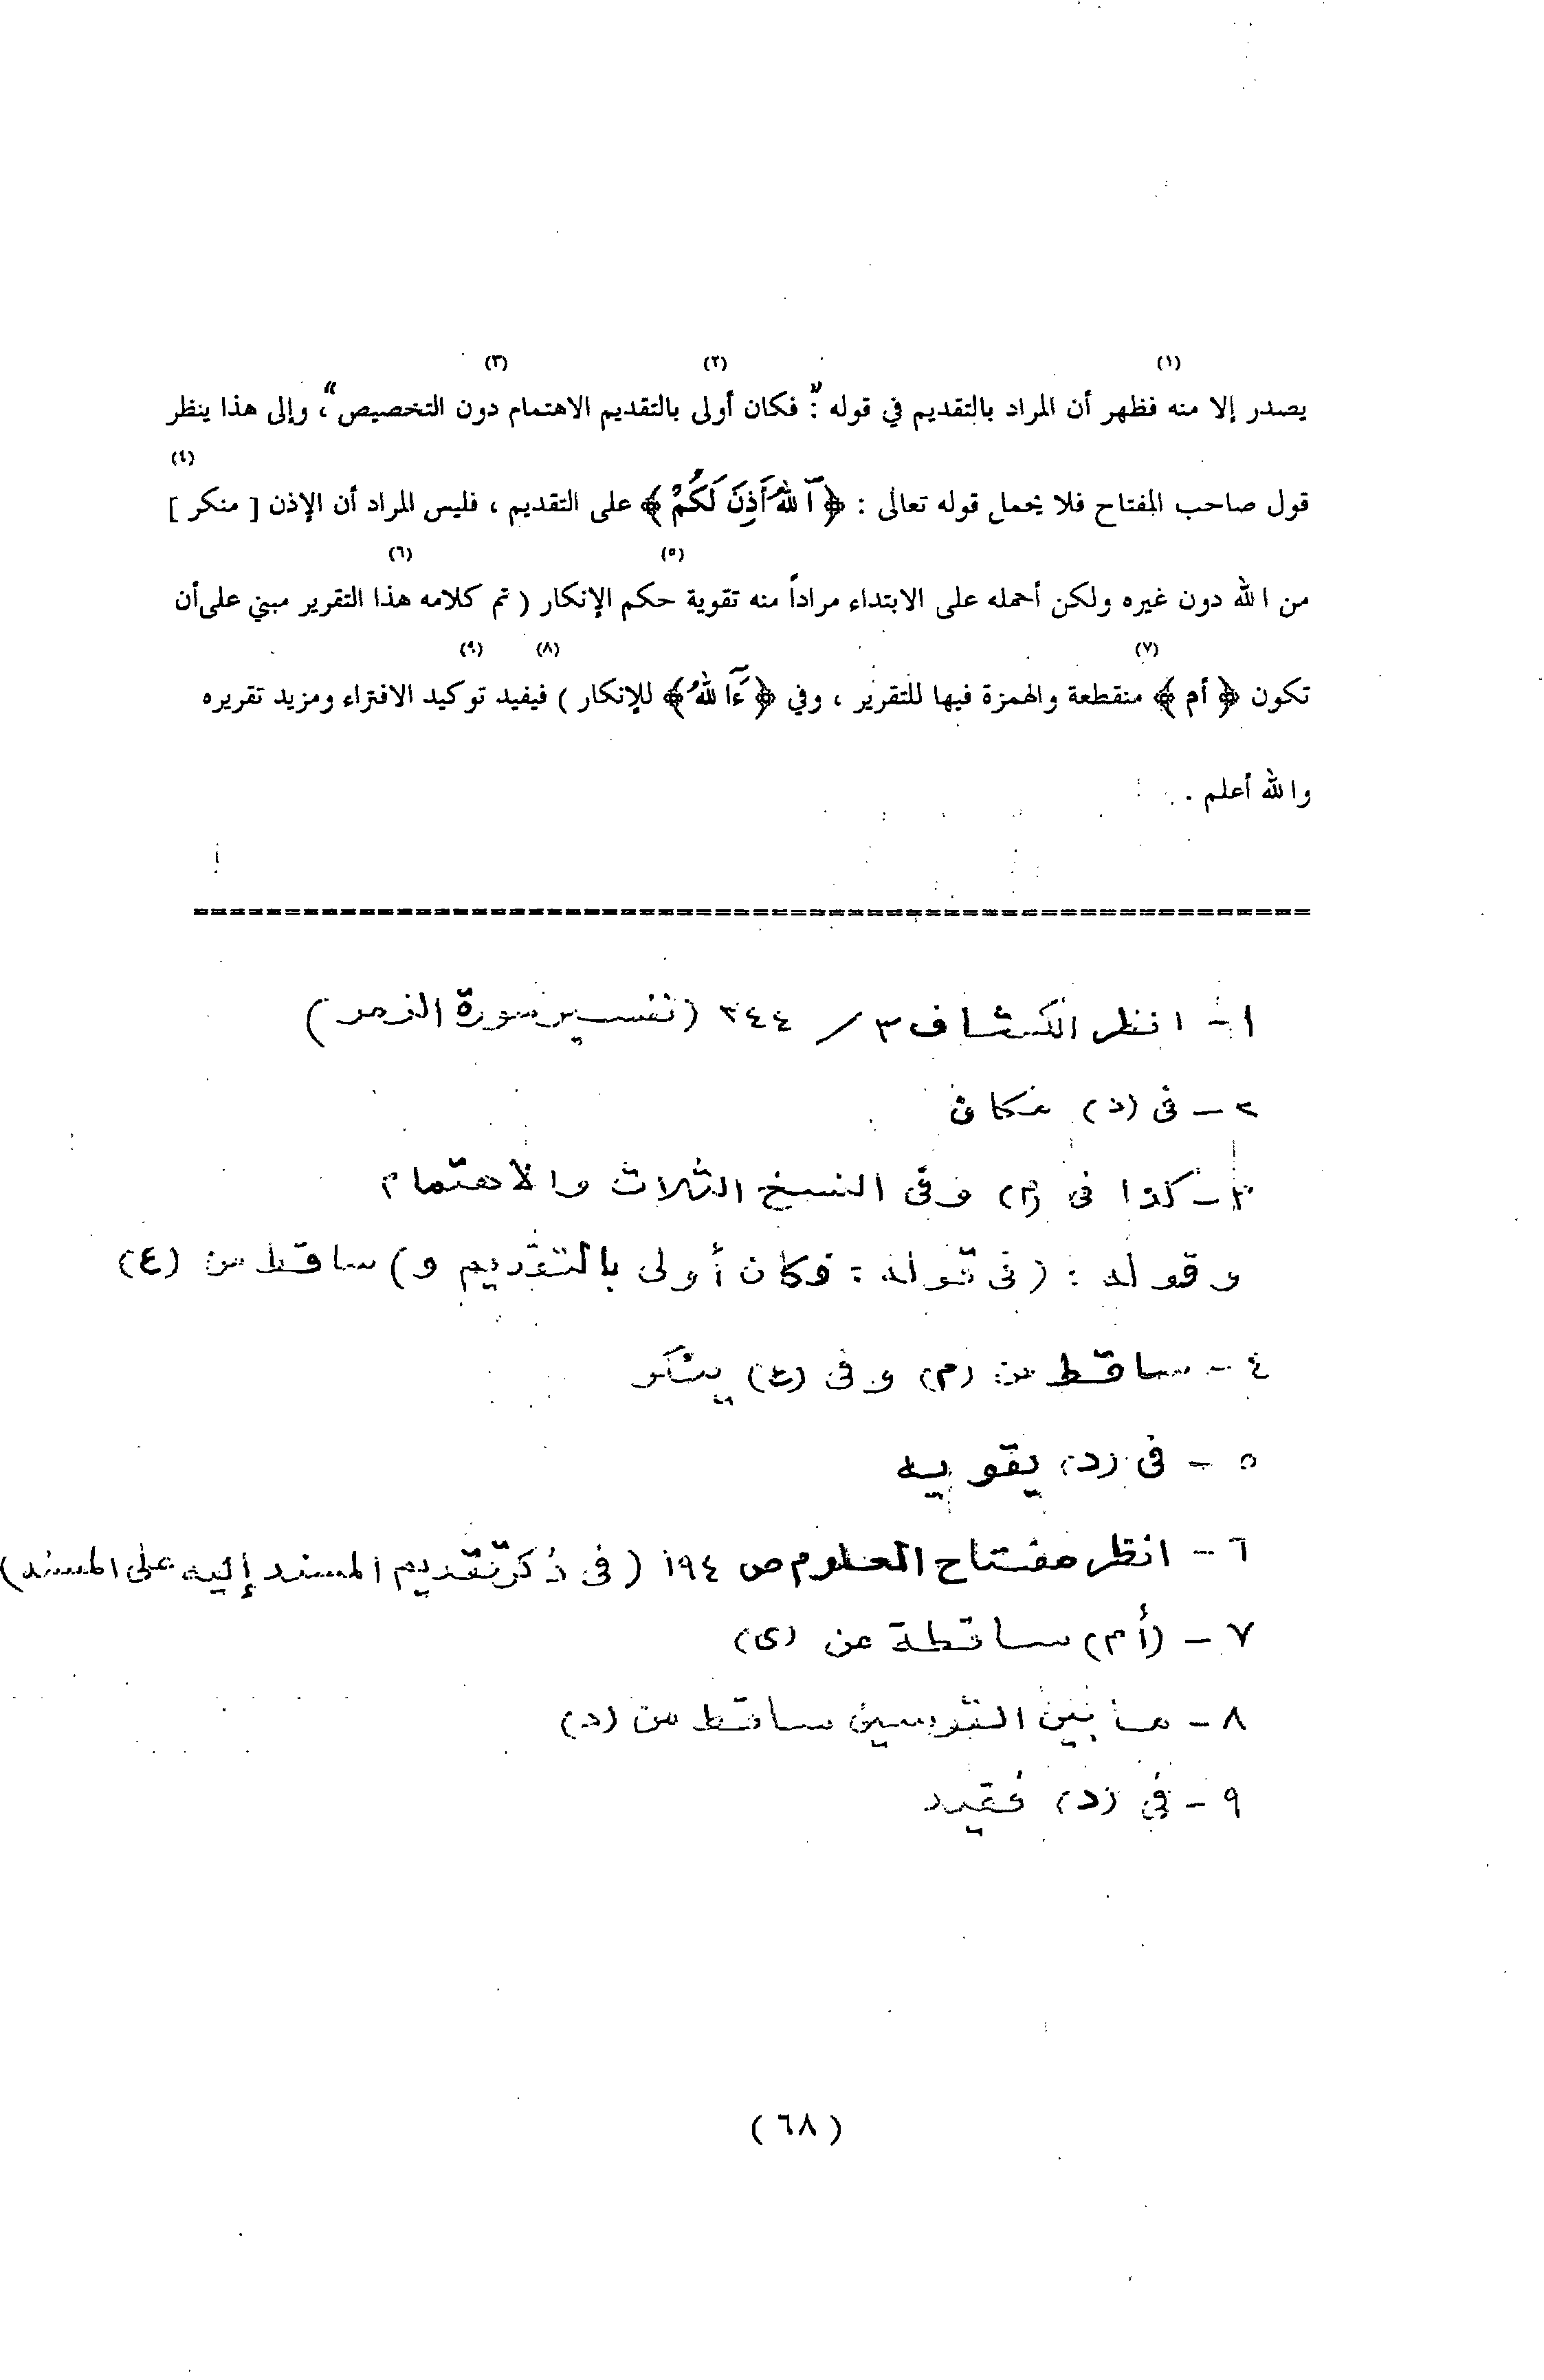 (١) (٢) (٣)
يصدر إلا منه فظهر أن المراد بالتقديم في قوله : " فكان أولى بالتقديم الاهتمام دون التخصيص " ، وإلى هذا ينظر
(٤)
قول صاحب المفتاح فلا يحمل قوله تعالى : ﴿ ءَآللَّهُ أَذِنَ لَكُمْ ﴾ على التقديم ، فليس المراد أن الإذن [ منكر ]
(٥) (٦)
من الله دون غيره ولكن أحمله على الابتداء مراداً منه تقوية حكم الإنكار ( تم كلامه هذا التقرير مبني على أن
(٧) (٨) (٩)
تكون ﴿ أم ﴾ منقطعة والهمزة فيها للتقرير ، وفي ﴿ ءَآللَّهُ ﴾ للإنكار ) فيفيد توكيد الافتراء ومزيد تقريره
والله أعلم .
١ - انظر الكشاف ٣ / ٣٤٤ (تفسير سورة الزمر)
٢ - فى (د) مكان
٣ - كذا فى (م) وفى النسخ الثلاث والاهتمام
وقوله : (فى قوله : فكان أولى بالتقديم و) ساقط من (ع)
٤ - ساقط من (م) وفى (ع) ينكر
٥ - فى (د) يقويه
٦ - انظر مفتاح العلوم ص ١٩٤ (فى ذكر تقديم المسند إليه على المسند)
٧ - (أم) ساقطة من (ى)
٨ - ما بين القوسين ساقط من (د)
٩ - فى (د) فقيد
(٦٨)